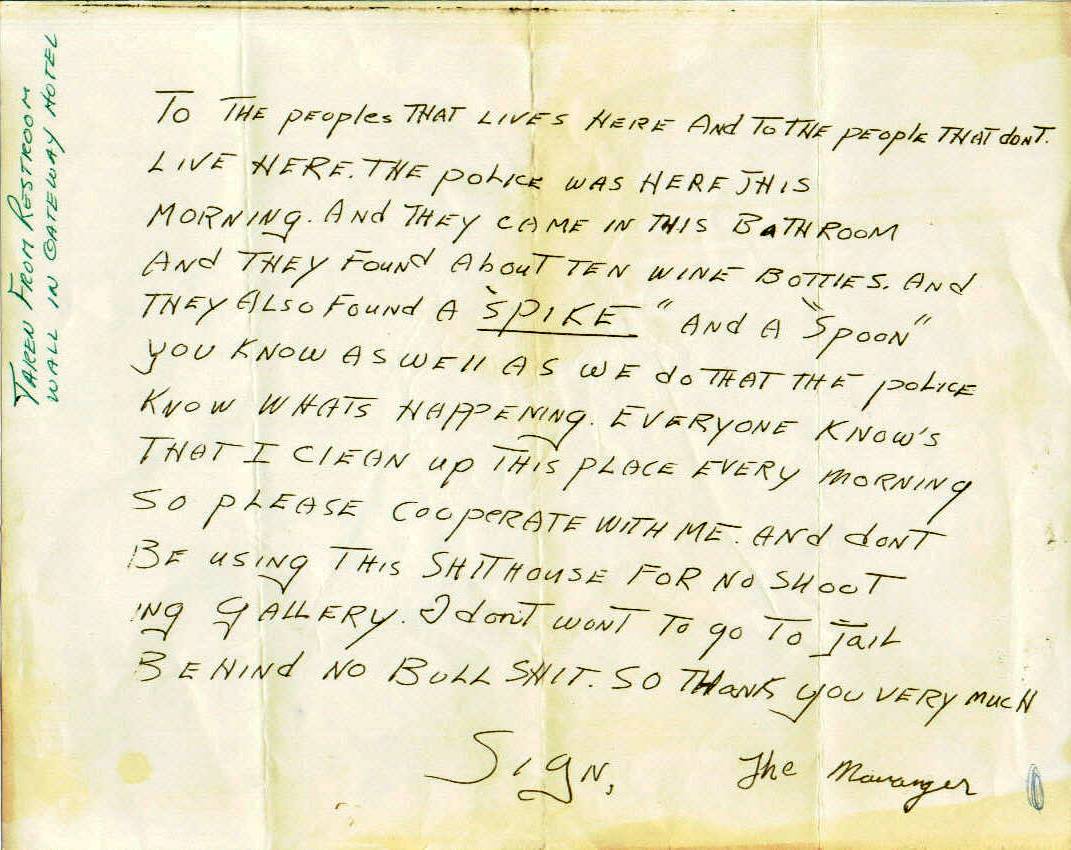 TAKEN FROM RESTROOM
WALL IN GATEWAY HOTEL
TO THE peoples THAT LIVES HERE And TO THE people THAT donT.
LIVE HERE. THE police WAS HERE THIS
MORNING. And THEY CAME IN THIS BaTHROOM
And THEY Found AbouT TEN WINE BOTTIES. And
THEY Also Found A "SPIKE" And A "Spoon"
you KNOW AS WEll AS WE do THAT THE police
KNOW WHATS HAPPENING. EVERYONE KNOW'S
THAT I ClEAN up THIS plACE EVERY MORNING
SO plEASE COOpERATE WITH ME. And donT
BE using THIS SHITHOUSE FOR NO SHOOT
ING GALLERY. I don't wonT TO go TO JAIL
BEHINd NO BULL SHIT. SO THank you VERY MucH
SIGN, The Mavanger